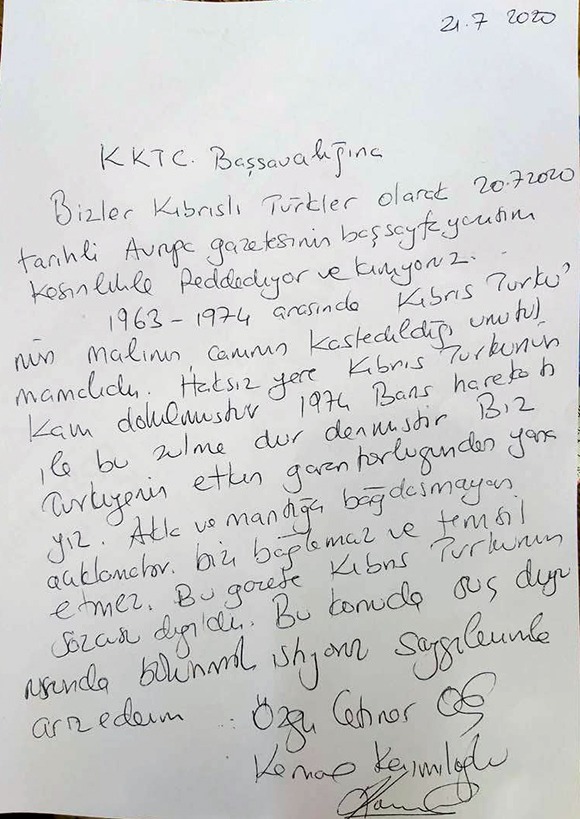 21.7 2020
KKTC. Başsavcılığına
Bizler Kıbrıslı Türkler olarak 20.7.2020
tarihli Avrupa gazetesinin başsayfa yayınını
kesinlikle Reddediyor ve kınıyoruz.
1963 - 1974 arasında Kıbrıs Türkü'
nün malının canının kastedildiği unutul
mamalıdır. Haksız yere Kıbrıs Türkünün
Kanı dökülmüştür 1974 Barış harekatı
ile bu zulme dur denmiştir Biz
Türkiyenin etkin garantörlüğünden yana
yız. Akla ve mantığa bağdaşmayan
açıklamalar. bizi bağlamaz ve temsil
etmez. Bu gazete Kıbrıs Türkünün
sözcüsü değildir. Bu konuda suç duyu
rusunda bulunmak istiyoruz Saygılarımla
arz ederim Özgü Cetiner
Kemal Kerimoğlu